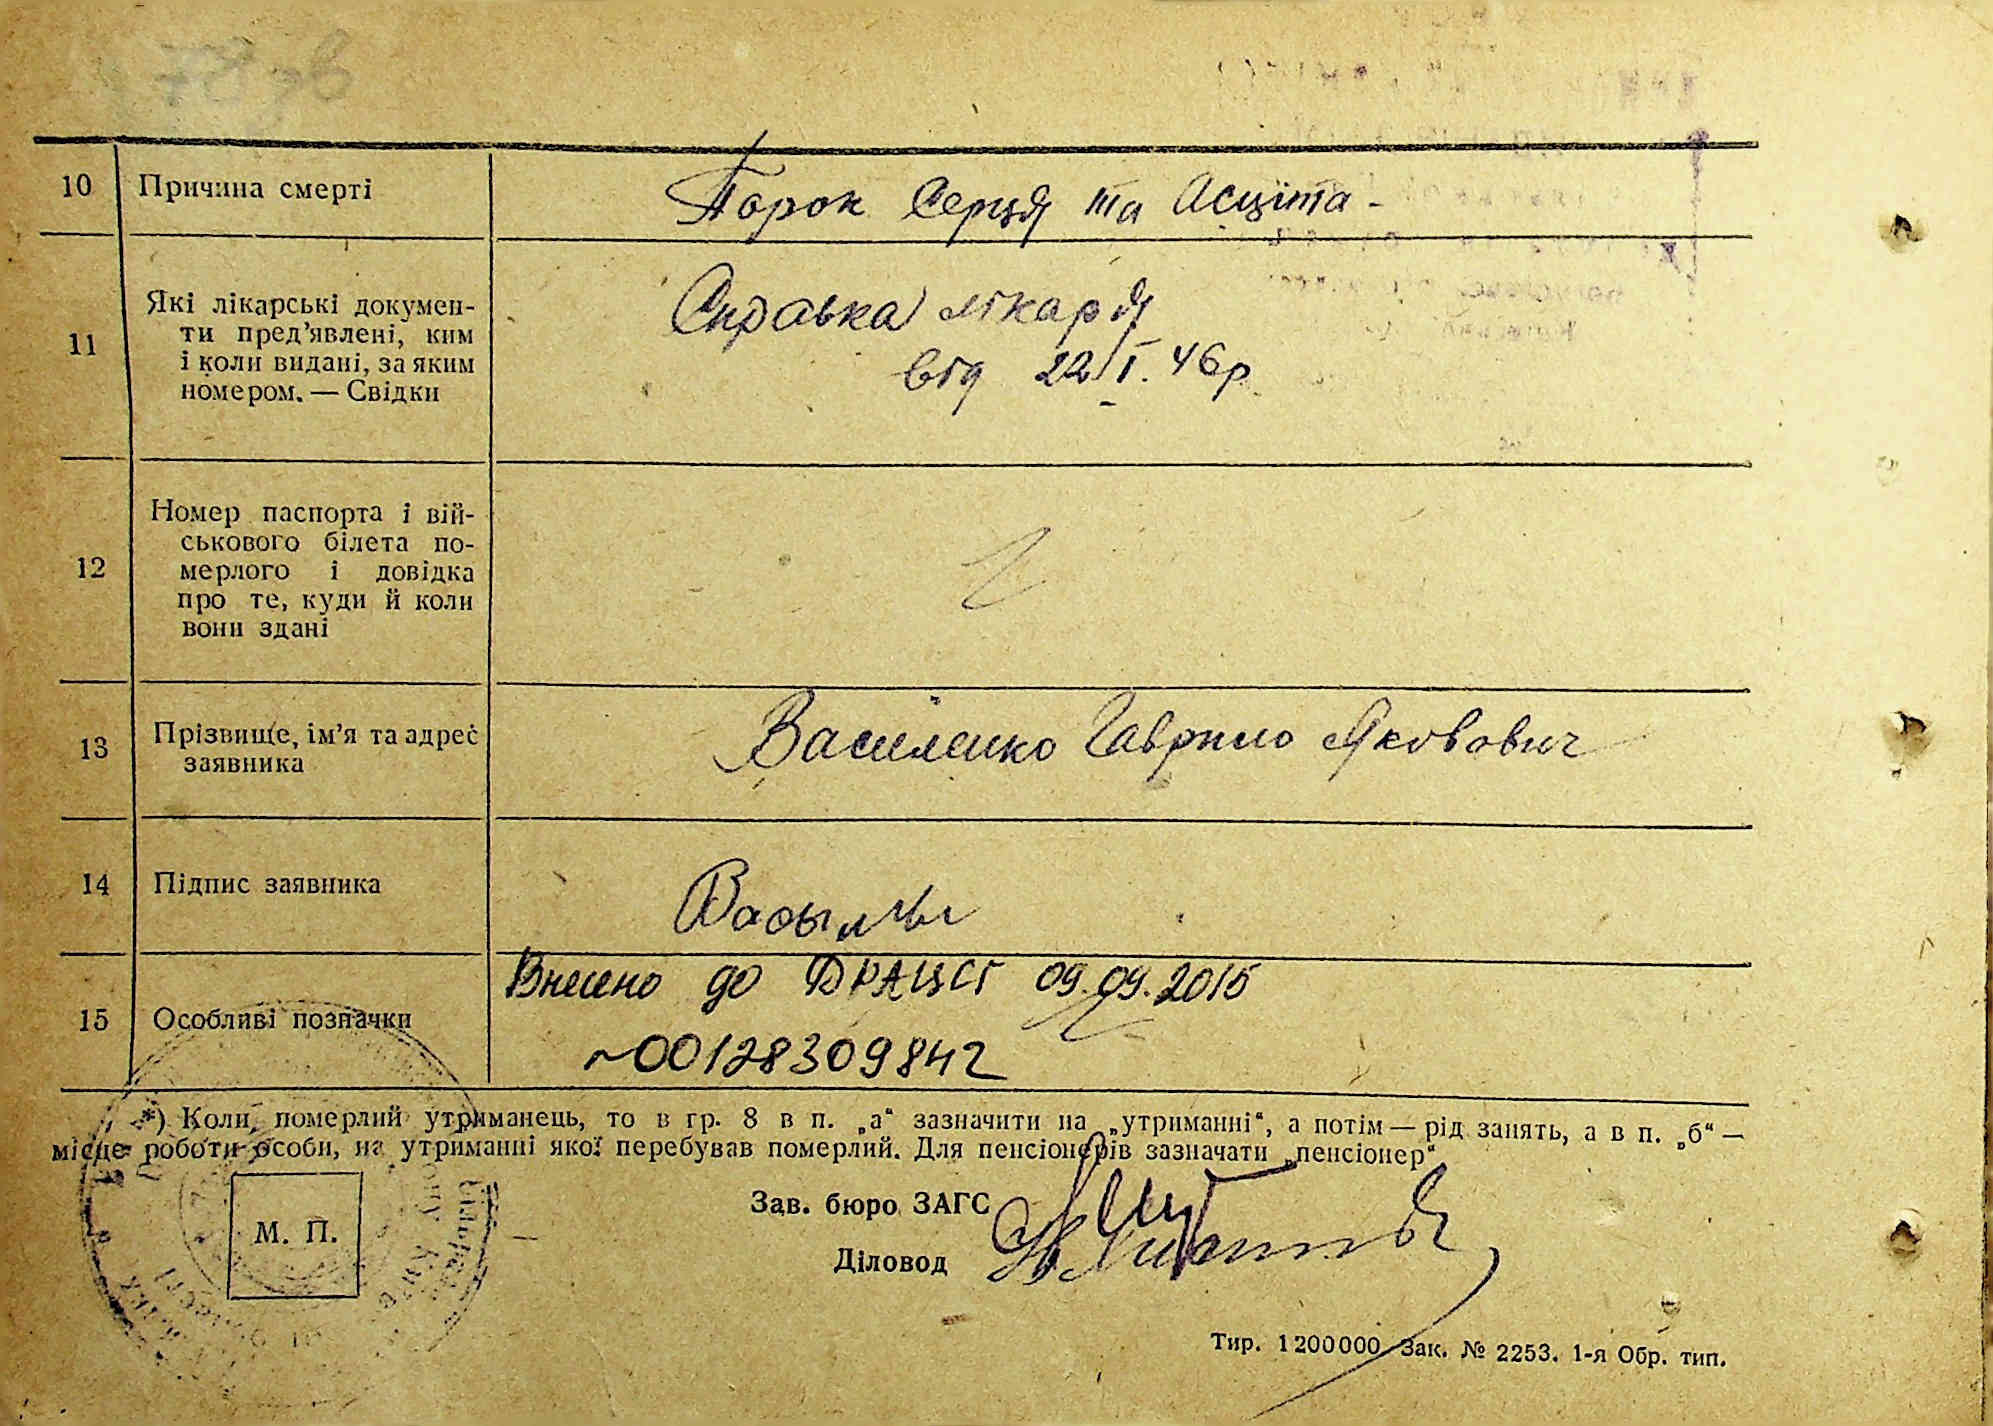 10 Причина смерті Порок Серця та Асціта -
11 Які лікарські докумен-
ти пред’явлені, ким
і коли видані, за яким
номером. — Свідки
Справка лікаря
від 22/I. 46р.
12 Номер паспорта і вій-
ськового білета по-
мерлого і довідка
про те, куди й коли
вони здані
13 Прізвище, ім’я та адрес
заявника
Василенко Гаврило Якович
14 Підпис заявника
15 Особливі позначки
Внесено до ДРАЦСГ 09.09.2015
~00128309842
*) Коли померлий утриманець, то в гр. 8 в п. „а“ зазначити на „утриманні“, а потім — рід занять, а в п. „б“ —
місце роботи особи, на утриманні якої перебував померлий. Для пенсіонерів зазначати „пенсіонер“
Зав. бюро ЗАГС
М. П.
Діловод
Тир. 1200000 Зак. № 2253. 1-я Обр. тип.